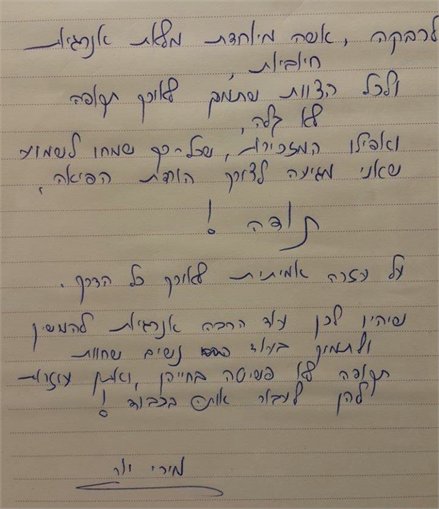 לרבקה, אשה מיוחדת מלאת אנרגיות
חיוביות,
ולכל הצוות שתמך לאורך תקופה
לא קלה,
ואפילו המזכירות, שכל-כך שמחו לשמוע
שאני מגיעה לצורך הורדת הפיאה,
תודה !
על עזרה אמיתית לאורך כל הדרך.
שיהיו לכן עוד הרבה אנרגיות להמשיך
ולתמוך בעוד נשים שחוות
תקופה לא פשוטה בחייהן, ואתן עוזרות
להן לעבור אותה בכבוד !
מירי